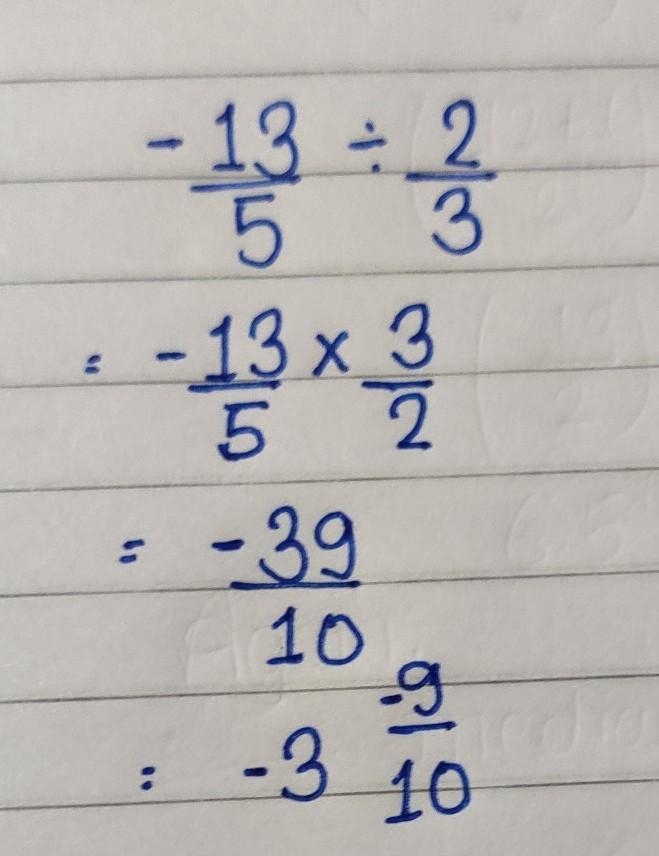 -13/5 ÷ 2/3
= -13/5 × 3/2
= -39/10
= -3 -9/10